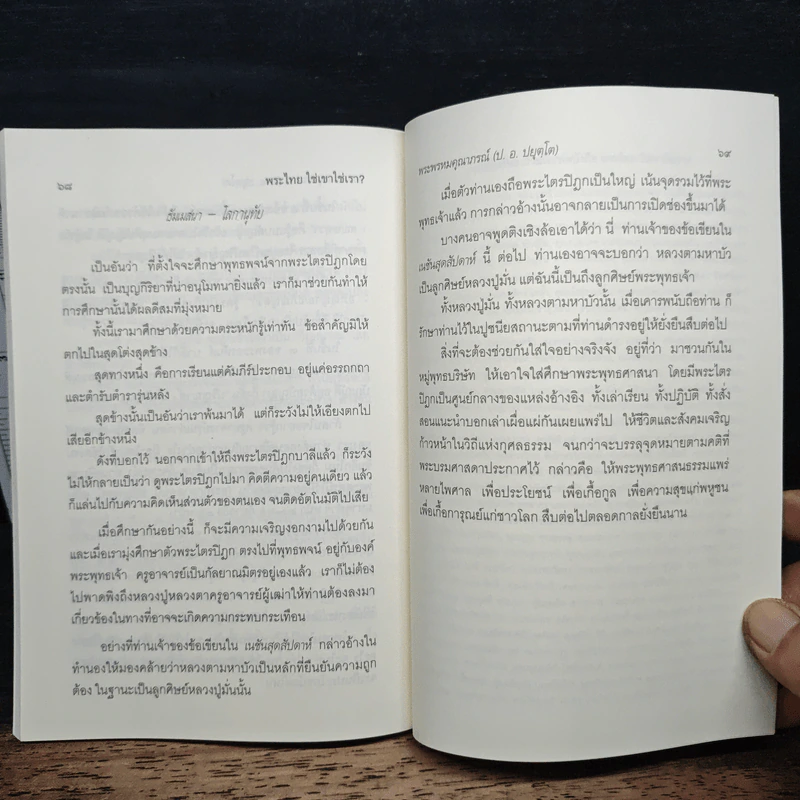 ๖๘
พระไทย ใช่เขาใช่เรา?
ธัมมสยา – โลกานุทัย
เป็นอันว่า ที่ตั้งใจจะศึกษาพุทธพจน์จากพระไตรปิฎกโดย
ตรงนั้น เป็นบุญกิริยาที่น่าอนุโมทนายิ่งแล้ว เราก็มาช่วยกันทำให้
การศึกษานั้นได้ผลดีสมที่มุ่งหมาย
ทั้งนี้เรามาศึกษาด้วยความตระหนักรู้เท่าทัน ข้อสำคัญมิให้
ตกไปในสุดโต่งสุดข้าง
สุดทางหนึ่ง คือการเรียนแต่คัมภีร์ประกอบ อยู่แค่อรรถกถา
และตำรับตำรารุ่นหลัง
สุดข้างนั้นเป็นอันว่าเราพ้นมาได้ แต่ก็ระวังไม่ให้เอียงตกไป
เสียอีกข้างหนึ่ง
ดังที่บอกไว้ นอกจากเข้าให้ถึงพระไตรปิฎกบาลีแล้ว ก็ระวัง
ไม่ให้กลายเป็นว่า ดูพระไตรปิฎกไปมา คิดตีความอยู่คนเดียว แล้ว
ก็แล่นไปกับความคิดเห็นส่วนตัวของตนเอง จนติดอัตโนมัติไปเสีย
เมื่อศึกษากันอย่างนี้ ก็จะมีความเจริญงอกงามไปด้วยกัน
และเมื่อเรามุ่งศึกษาตัวพระไตรปิฎก ตรงไปที่พุทธพจน์ อยู่กับองค์
พระพุทธเจ้า ครูอาจารย์เป็นกัลยาณมิตรอยู่เองแล้ว เราก็ไม่ต้อง
ไปพาดพิงถึงหลวงปู่หลวงตาครูอาจารย์ผู้เฒ่าให้ท่านต้องลงมา
เกี่ยวข้องในทางที่อาจจะเกิดความกระทบกระเทือน
อย่างที่ท่านเจ้าของข้อเขียนใน เนชันสุดสัปดาห์ กล่าวอ้างใน
ทำนองให้มองคล้ายว่าหลวงตามหาบัวเป็นหลักที่ยืนยันความถูก
ต้อง ในฐานะเป็นลูกศิษย์หลวงปู่มั่นนั้น
พระพรหมคุณาภรณ์ (ป. อ. ปยุตฺโต)
๖๙
เมื่อตัวท่านเองถือพระไตรปิฎกเป็นใหญ่ เน้นจุดรวมไว้ที่พระ
พุทธเจ้าแล้ว การกล่าวอ้างนั้นอาจกลายเป็นการเปิดช่องขึ้นมาได้
บางคนอาจพูดติงเชิงล้อเอาได้ว่า นี่ ท่านเจ้าของข้อเขียนใน
เนชันสุดสัปดาห์ นี้ ต่อไป ท่านเองอาจจะบอกว่า หลวงตามหาบัว
เป็นลูกศิษย์หลวงปู่มั่น แต่ฉันนี้เป็นถึงลูกศิษย์พระพุทธเจ้า
ทั้งหลวงปู่มั่น ทั้งหลวงตามหาบัวนั้น เมื่อเคารพนับถือท่าน ก็
รักษาท่านไว้ในปูชนียสถานะตามที่ท่านดำรงอยู่ให้ยั่งยืนสืบต่อไป
สิ่งที่จะต้องช่วยกันใส่ใจอย่างจริงจัง อยู่ที่ว่า มาชวนกันใน
หมู่พุทธบริษัท ให้เอาใจใส่ศึกษาพระพุทธศาสนา โดยมีพระไตร
ปิฎกเป็นศูนย์กลางของแหล่งอ้างอิง ทั้งเล่าเรียน ทั้งปฏิบัติ ทั้งสั่ง
สอนแนะนำบอกเล่าเผื่อแผ่กันเผยแพร่ไป ให้ชีวิตและสังคมเจริญ
ก้าวหน้าในวิถีแห่งกุศลธรรม จนกว่าจะบรรลุจุดหมายตามคติที่
พระบรมศาสดาประกาศไว้ กล่าวคือ ให้พระพุทธศาสนธรรมแพร่
หลายไพศาล เพื่อประโยชน์ เพื่อเกื้อกูล เพื่อความสุขแก่พหูชน
เพื่อเกื้อการุณย์แก่ชาวโลก สืบต่อไปตลอดกาลยั่งยืนนาน